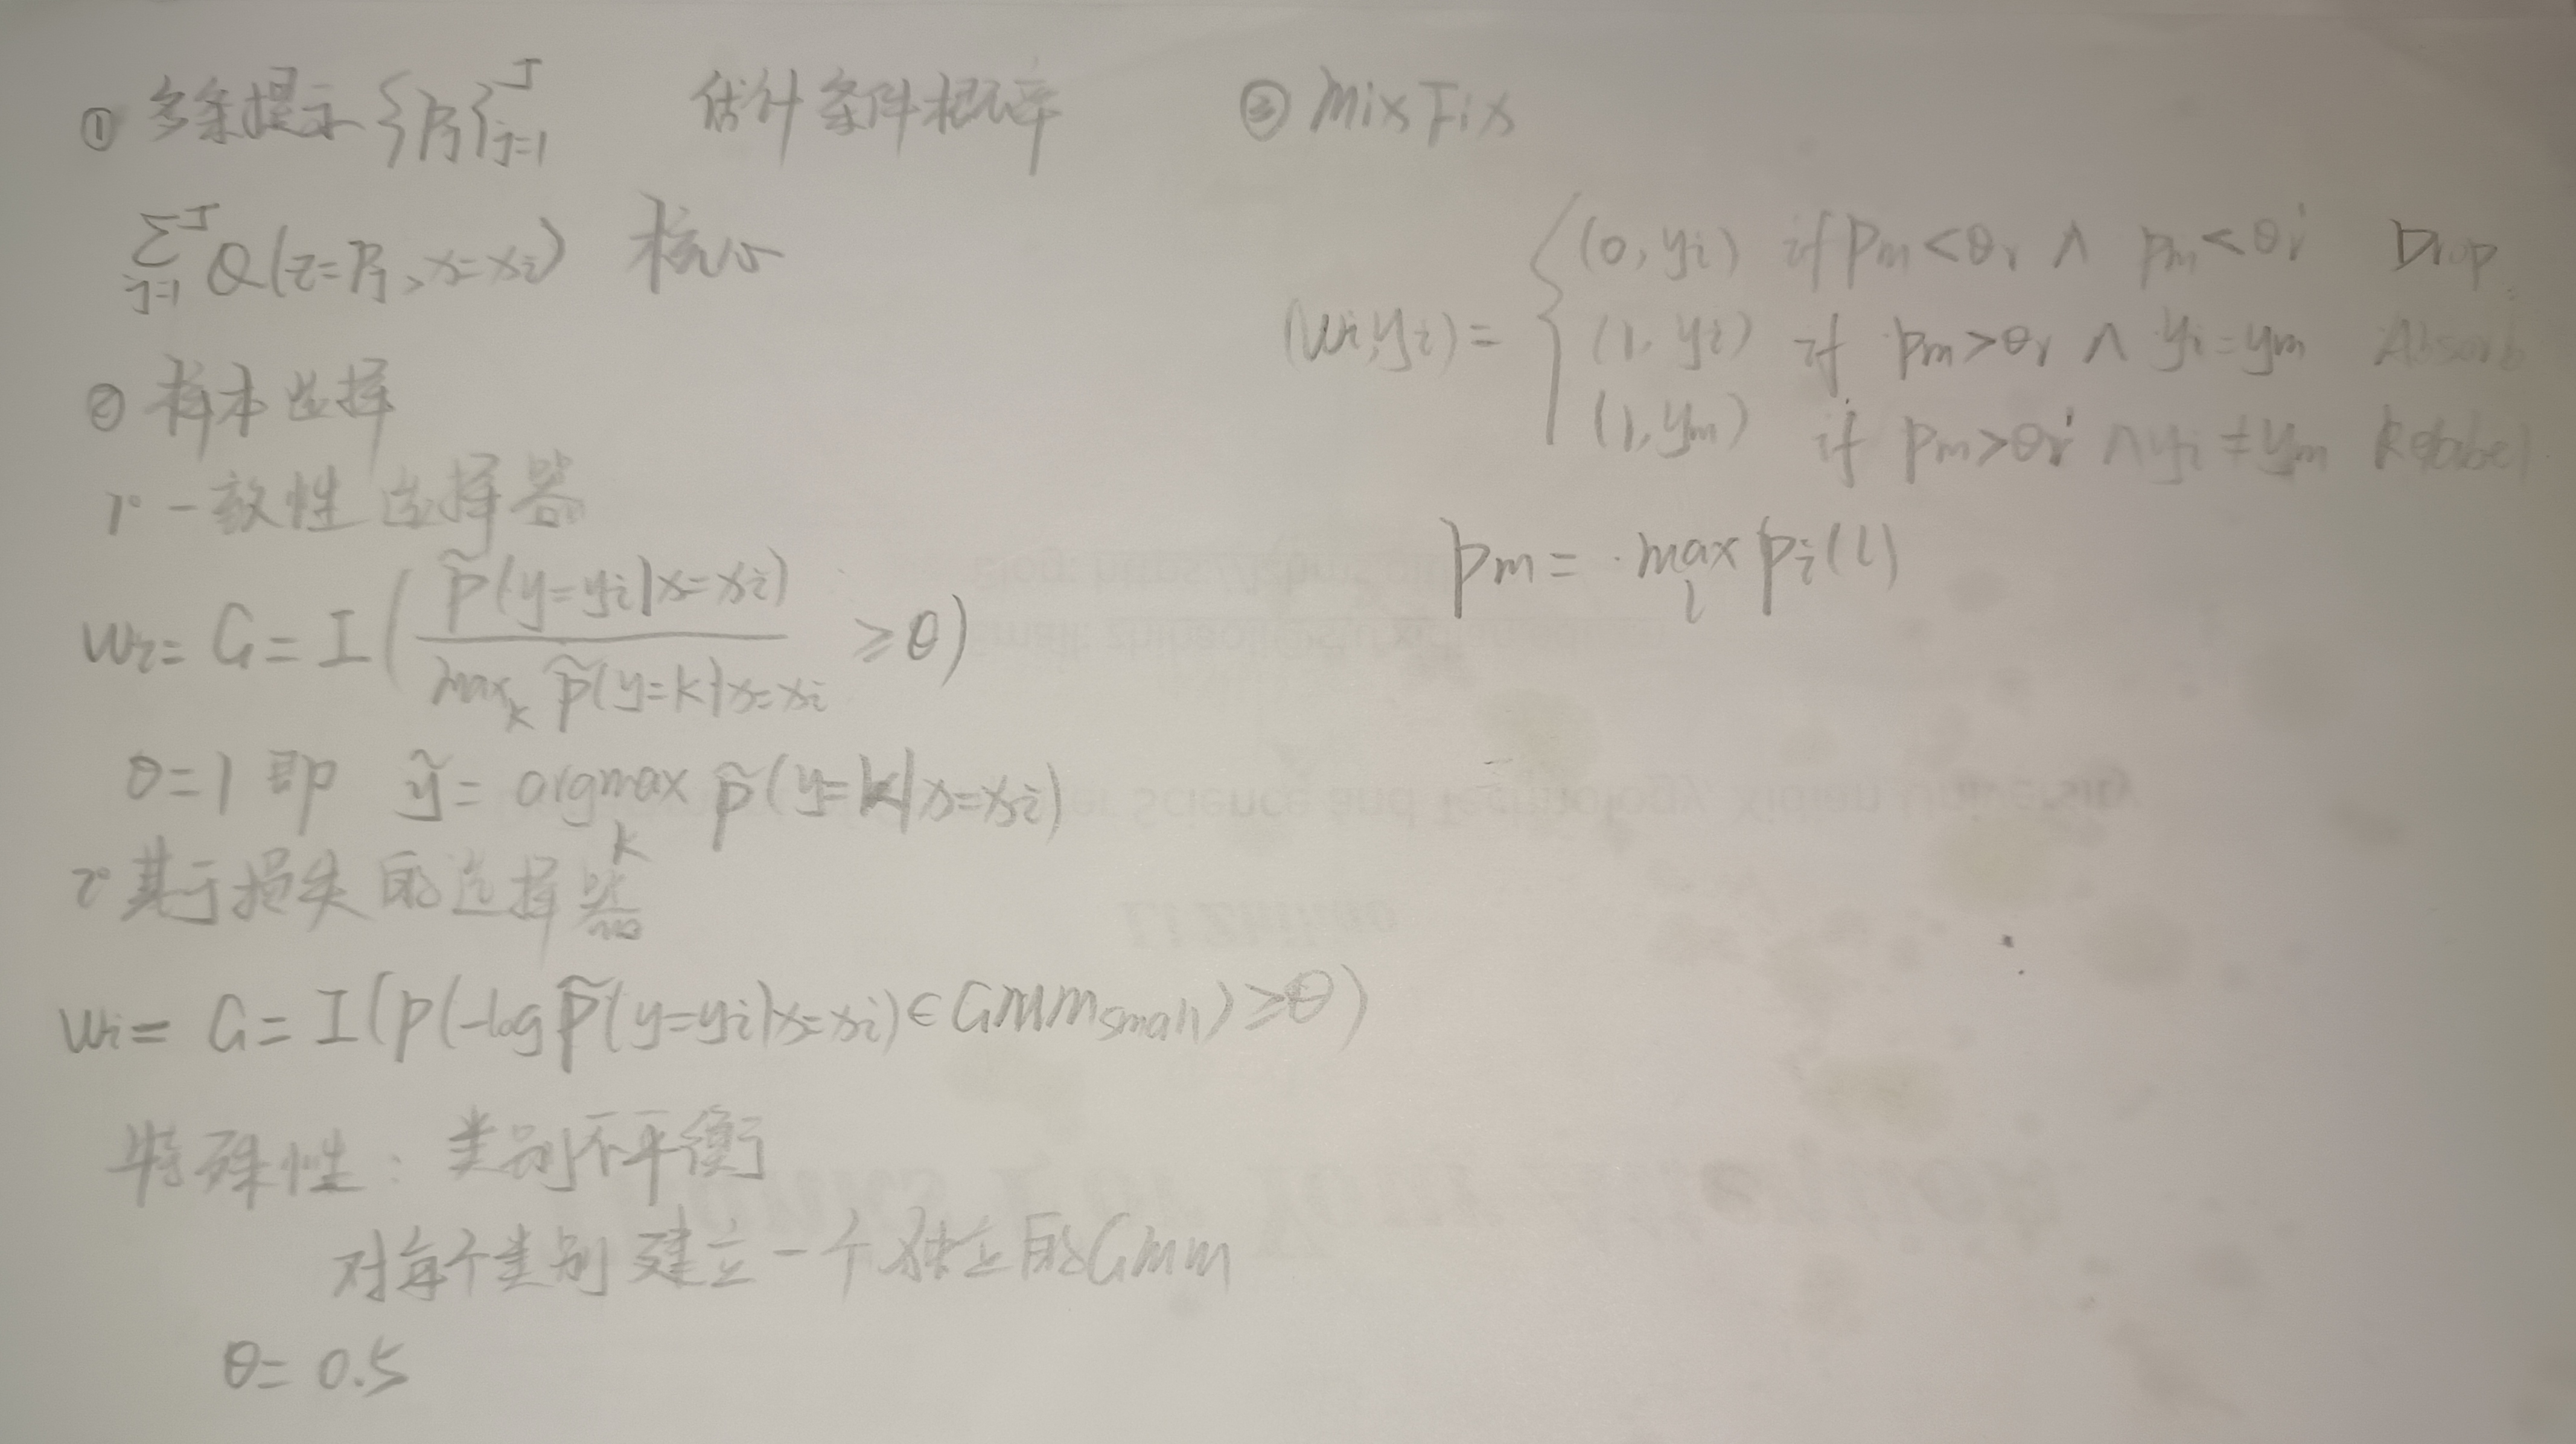 ① 多条提示 {Pj}_{j=1}^{J} 估计条件概率
∑_{j=1}^{J} Q(z=Pj, x=xi) 核心
② 样本选择
1° 一致性选择器
wi = G = I( p̃(y=yi|x=xi) / max_k p̃(y=k|x=xi ≥ θ)
θ=1 即 ỹ = argmax_k p̃(y=k|x=xi)
2° 基于损失的选择器
wi = G = I(p(-log p̃(y=yi|x=xi) ∈ GMM_small) ≥ θ)
特殊性: 类别不平衡
对每个类别建立一个独立的GMM
θ= 0.5
③ MixFix
(wi, yi) = {
(0, yi) if pm<θr ∧ pm<θr' Drop
(1, yi) if pm>θr ∧ yi=ym Absorb
(1, ym) if pm>θr' ∧ yi≠ym Relabel
pm = max_l pi(l)